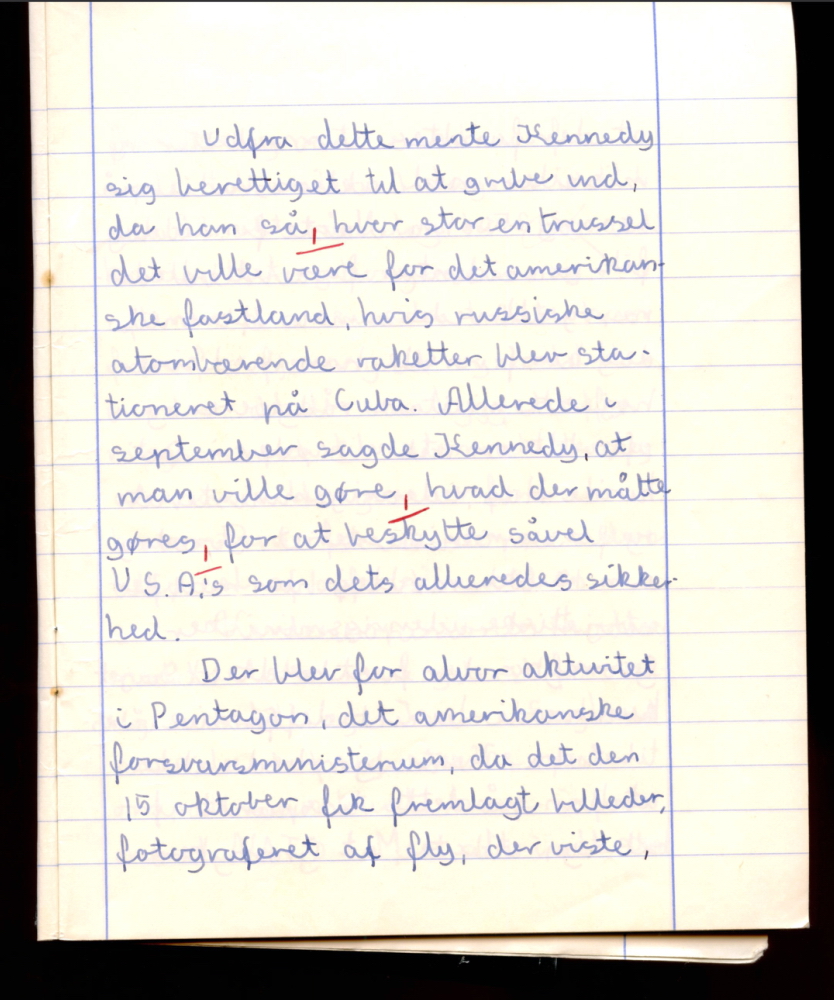 Udfra dette mente Kennedy
sig berettiget til at gribe ind,
da han så, hvor stor en trussel
det ville være for det amerikan-
ske fastland, hvis russiske
atombærende raketter blev sta-
tioneret på Cuba. Allerede i
september sagde Kennedy, at
man ville gøre, hvad der måtte
gøres, for at beskytte såvel
U.S.A.'s som dets allieredes sikker-
hed.
Der blev for alvor aktivitet
i Pentagon, det amerikanske
forsvarsministerium, da det den
15 oktober fik fremlagt billeder,
fotograferet af fly, der viste,